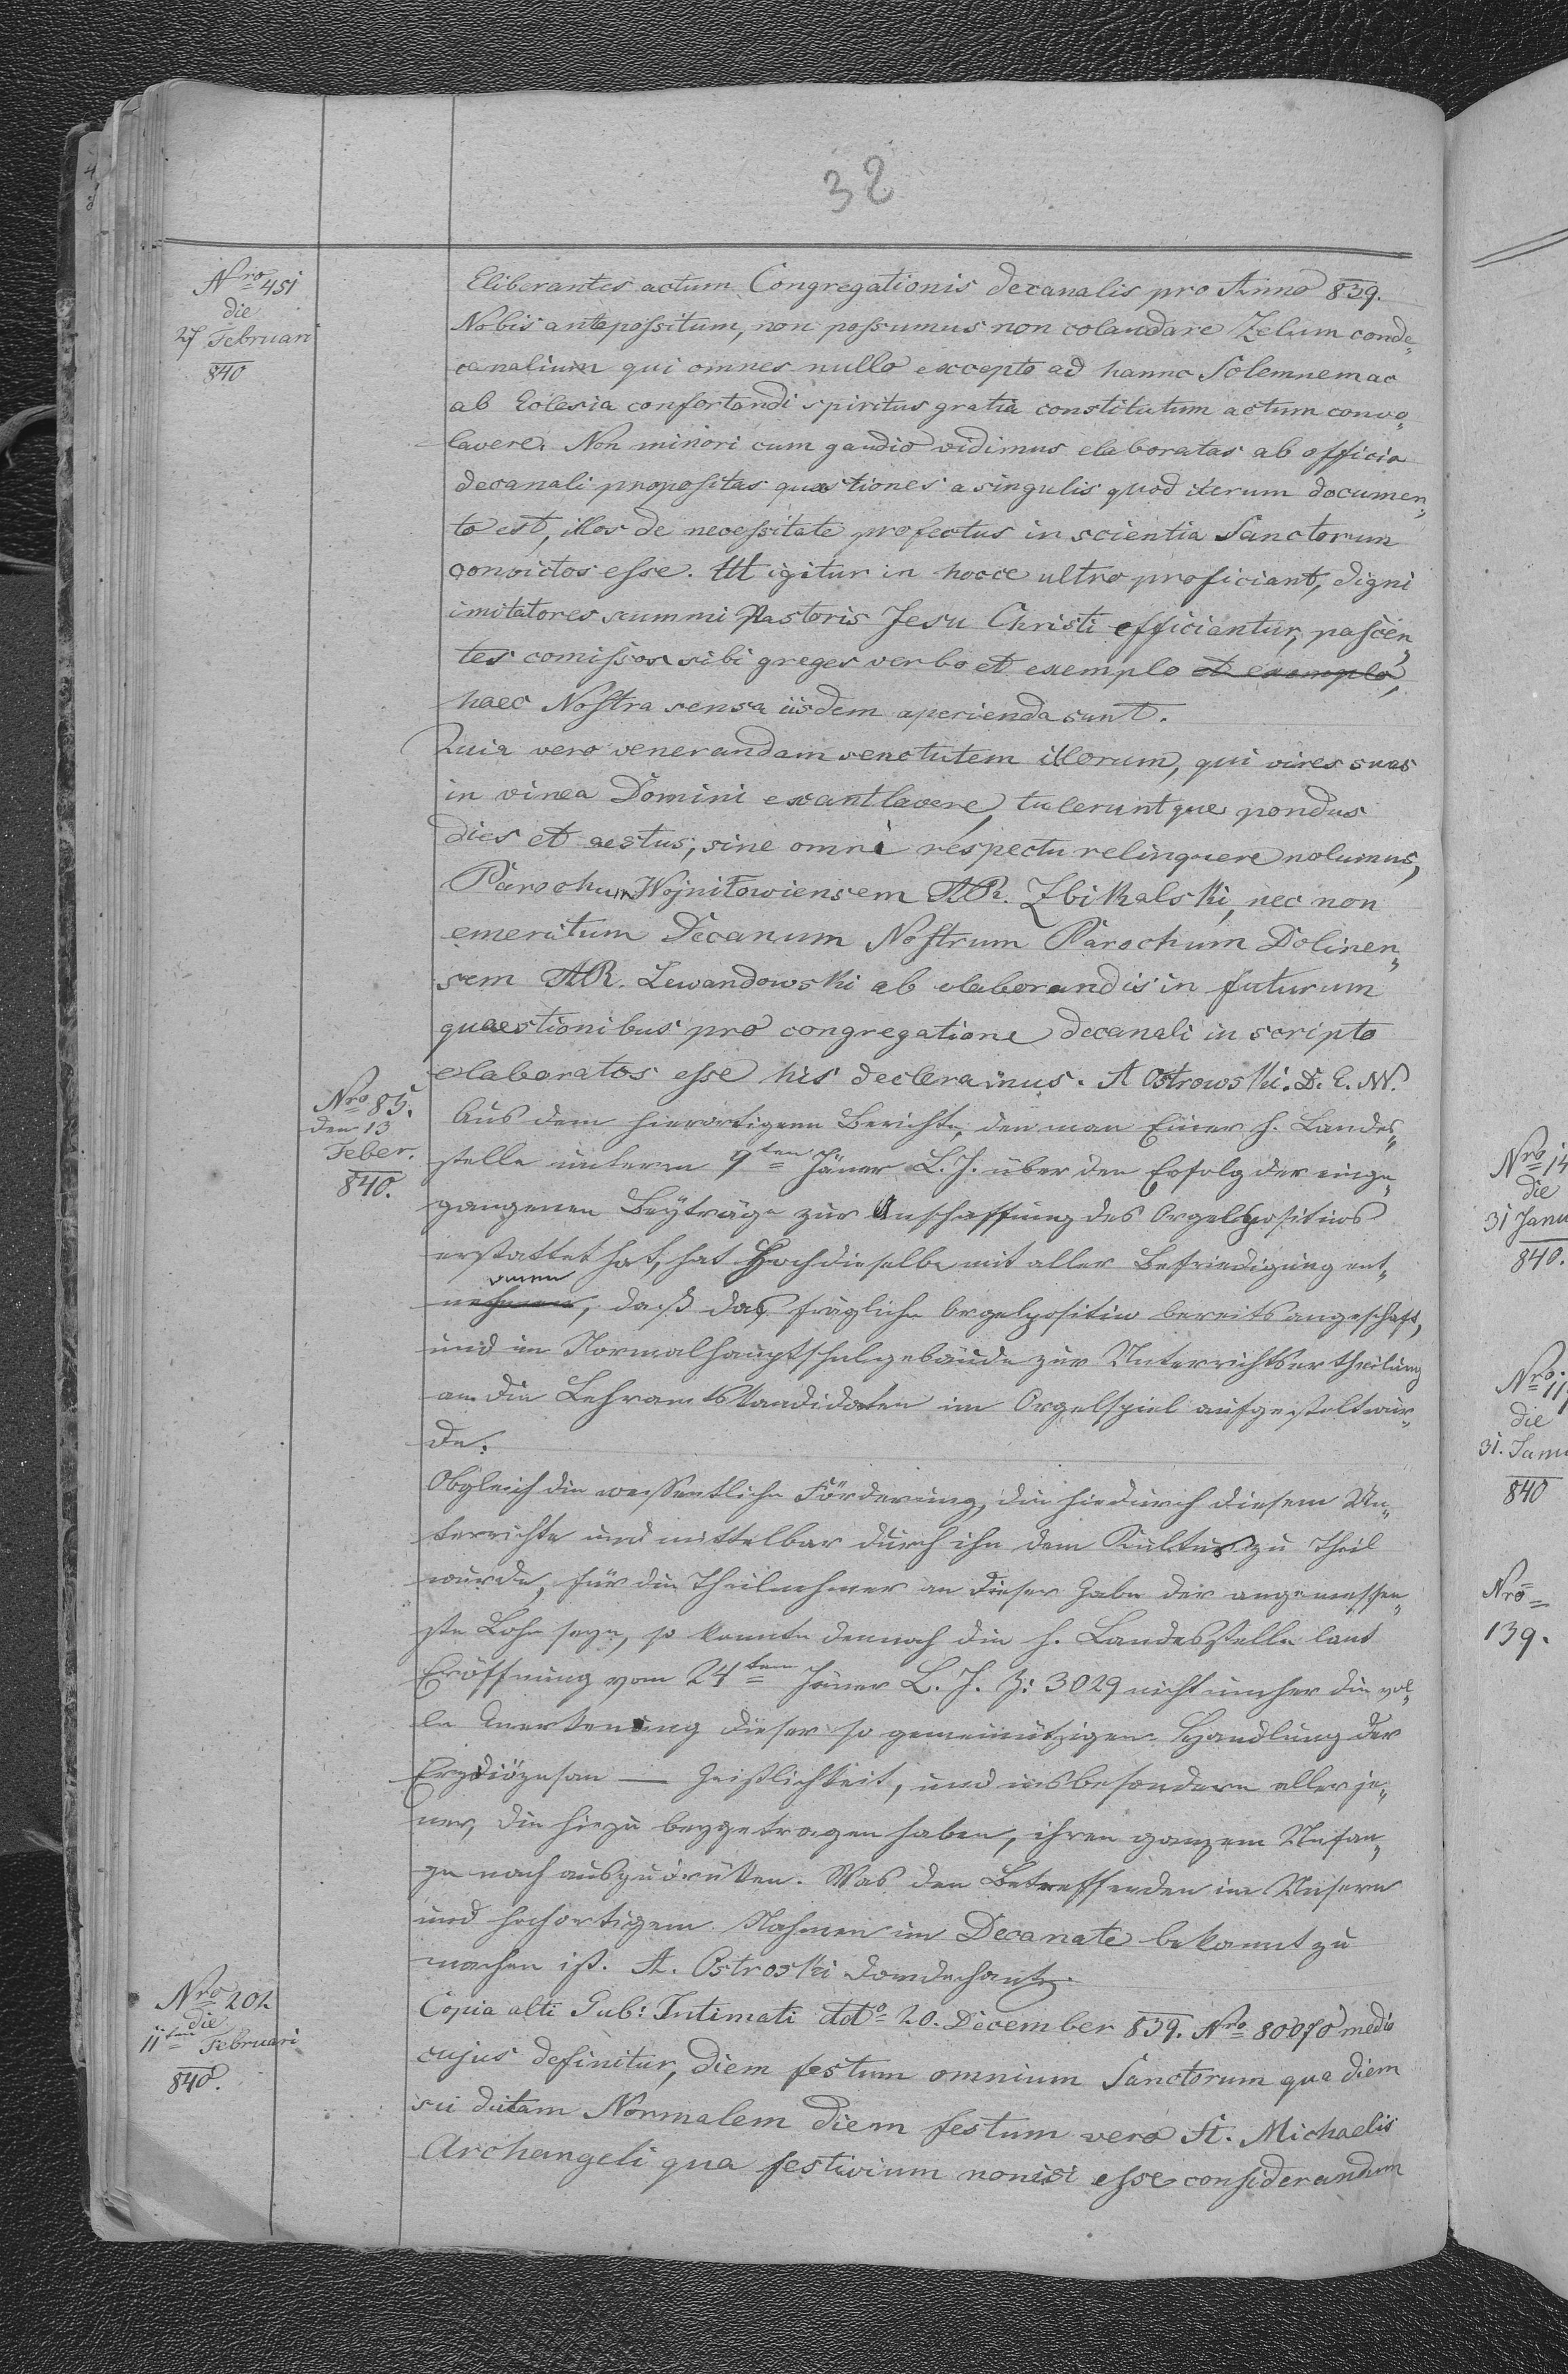 32
Nro 451
die
27 Februari
840
Eliberantes actum Congregationis decanalis pro Anno 839.
Nobis antepossitum, non possumus non colaudare Zelum conde„
canalium qui omnes nullo excepto ad hannc Solemnem ac
ab Eclesia confortandi spiritus gratia constitutum actum convo„
lavere. Non minori cum gaudio vidimus elaboratas ab officio
decanali propositas quaestiones a singulis quod iterum documen„
to est, illos de necessitate profectus in scientia Sanctorum
convictos esse. Ut igitur in hocce ultro proficiant, digni
imitatores summi Pastoris Jesu Christi efficiantur, pascen„
tes comissos sibi greges verbo et exemplo et exemplo,
haec Nostra sensa iisdem aperienda sunt.
Quia vero venerandam senctutem illorum, qui vires suas
in vinea Domini exantlavere, tuleruntque pondus
dies et aestus, sine omni respectu relinquere nolumus,
Parochum Wojniłowiensem AR. Zbikalski, nec non
emeritum Decanum Nostrum Parochum Dolinen„
sem AR. Lewandowski ab elaborandis in futurum
quaestionibus pro congregatione decanali in scripto
elaboratos esse his decleramus. A Ostrowski. D. C. M.
Nro 85.
den 13
Feber.
840.
Aus dem hierortigenn Berichte, den man Einer h. Landes„
stelle unterm 9ten Jäner L. J. über den Erfolg der einge„
gangenen Beyträge zur Anschaffung des Orgelspositivs
erstattet hat, hat Hochdieselbe mit aller Befriedigung ent„
nehmen, daß das fragliche Orgelpositiv bereits angeschaft,
und im Normalhauptschulgebäude zur Unterrichtsertheilung
an die Lehramtskandidaten im Orgelspiel aufgestelt wur„
de.
Obgleich die wessentliche Förderung, die hiedurch diesem Un„
terrichte und mittelbar durch ihn dem Kultus zu Theil
wurde, für die Theilnehmer an dieser Gabe der angemessen„
ste Lohn seyn, so konnte dennoch die h. Landesstelle laut
Eröffnung vom 24ten Jäner L. J. Z: 3029 nicht umher die vol„
le Anerkenung dieser so gemeinnützigen Handlung der
Erzdiözesan — Geistlichkeit, und insbesondere aller je„
ner, die hiezu beygetragen haben, ihren ganzem Umfan„
ge nach auszudrükken. Was den Betreffenden im Unsern
und hochortigem Nahmen im Decanate bekannt zu
machen ist. A. Ostroski Domdechant.
Nro 202
die
11ten Februari
840.
Copia alti Gub: Intimati ddto 20. December 839. Nro 80070 medio
cujus definitur, diem festum omnium Sanctorum qua diem
sii dictam Normalem diem festum vero St. Michaelis
Archangeli qua festivium nonisi esse considerandum
Nro 14
die
31 Janu
840.
Nro. 11
die
31. Janu
840
Nro
139.